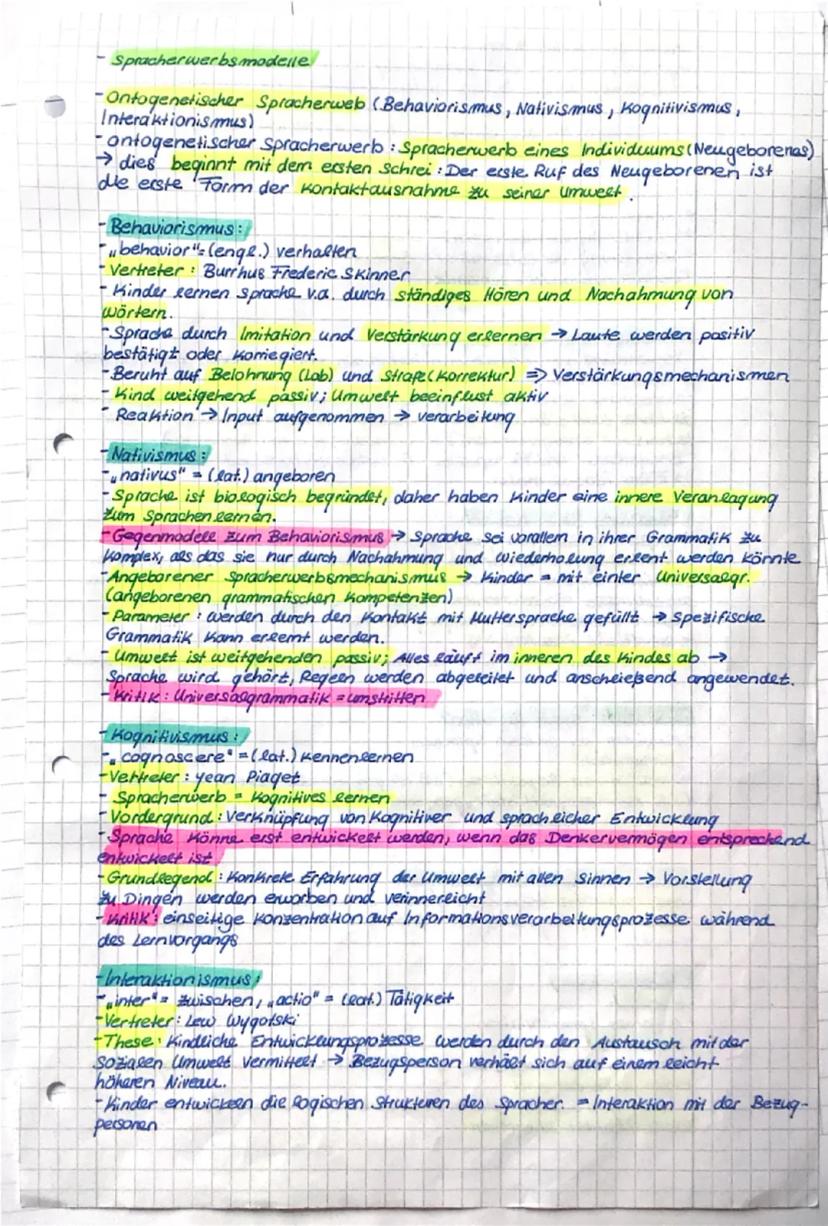 - Spracherwerbsmodelle
- Ontogenetischer Spracherweb (Behaviorismus, Nativismus, Kognitivismus,
Interaktionismus)
- ontogenetischer Spracherwerb: Spracherwerb eines Individuums (Neugeborenes)
→ dies beginnt mit dem ersten Schrei: Der erste Ruf des Neugeborenen ist
die erste Form der Kontaktausnahme zu seiner Umwelt.
- Behaviorismus:
- „behavior" = (engl.) verhalten
- Vertreter: Burrhus Frederic Skinner
- Kinder lernen Sprache v.a. durch ständiges Hören und Nachahmung von
Wörtern.
- Sprache durch Imitation und Verstärkung erlernen → Laute werden positiv
bestätigt oder korriegiert.
- Beruht auf Belohnung (Lob) und Strafe (Korrektur) => Verstärkungsmechanismen
- Kind weitgehend passiv; Umwelt beeinflust aktiv
- Reaktion → Input aufgenommen → verarbeitung
- Nativismus:
- „nativus" = (lat.) angeboren
- Sprache ist biologisch begründet, daher haben Kinder eine innere Veranlagung
zum Sprachenlernen.
- Gegenmodell zum Behaviorismus → Sprache sei vorallem in ihrer Grammatik zu
komplex, als das sie nur durch Nachahmung und Wiederholung erlent werden könnte
- Angeborener Spracherwerbsmechanismus → Kinder = mit einter Universalgr.
(angeborenen grammatischen Kompetenzen)
- Parameter: werden durch den Kontakt mit Muttersprache gefüllt → spezifische
Grammatik kann erlernt werden.
- Umwelt ist weitgehenden passiv; Alles läuft im inneren des Kindes ab →
Sprache wird gehört, Regeln werden abgeleitet und anschließend angewendet.
- Kritik: Universalgrammatik = umstritten
- Kognitivismus:
- „cognoscere" = (lat.) kennenlernen
- Vertreter: yean Piaget
- Spracherwerb = Kognitives lernen
- Vordergrund: Verknüpfung von Kognitiver und sprachlicher Entwicklung
- Sprache könne erst entwickelt werden, wenn das Denkervermögen entsprechend
entwickelt ist
- Grundlegend: Konkrete Erfahrung der Umwelt mit allen Sinnen → Vorstellung
zu Dingen werden erworben und verinnerlicht
- Kritik: einseitige Konzentration auf Informationsverarbeitungsprozesse während
des Lernvorgangs
- Interaktionismus:
- „inter" = zwischen, „actio" = (lat.) Tätigkeit
- Vertreter: Lew Wygotski
- These: Kindliche Entwicklungsprozesse werden durch den Austausch mit der
Sozialen Umwelt vermittelt → Bezugsperson verhält sich auf einem leicht
höheren Niveau.
- Kinder entwickeln die logischen Strukturen des Spracher. = Interaktion mit der Bezug-
personen